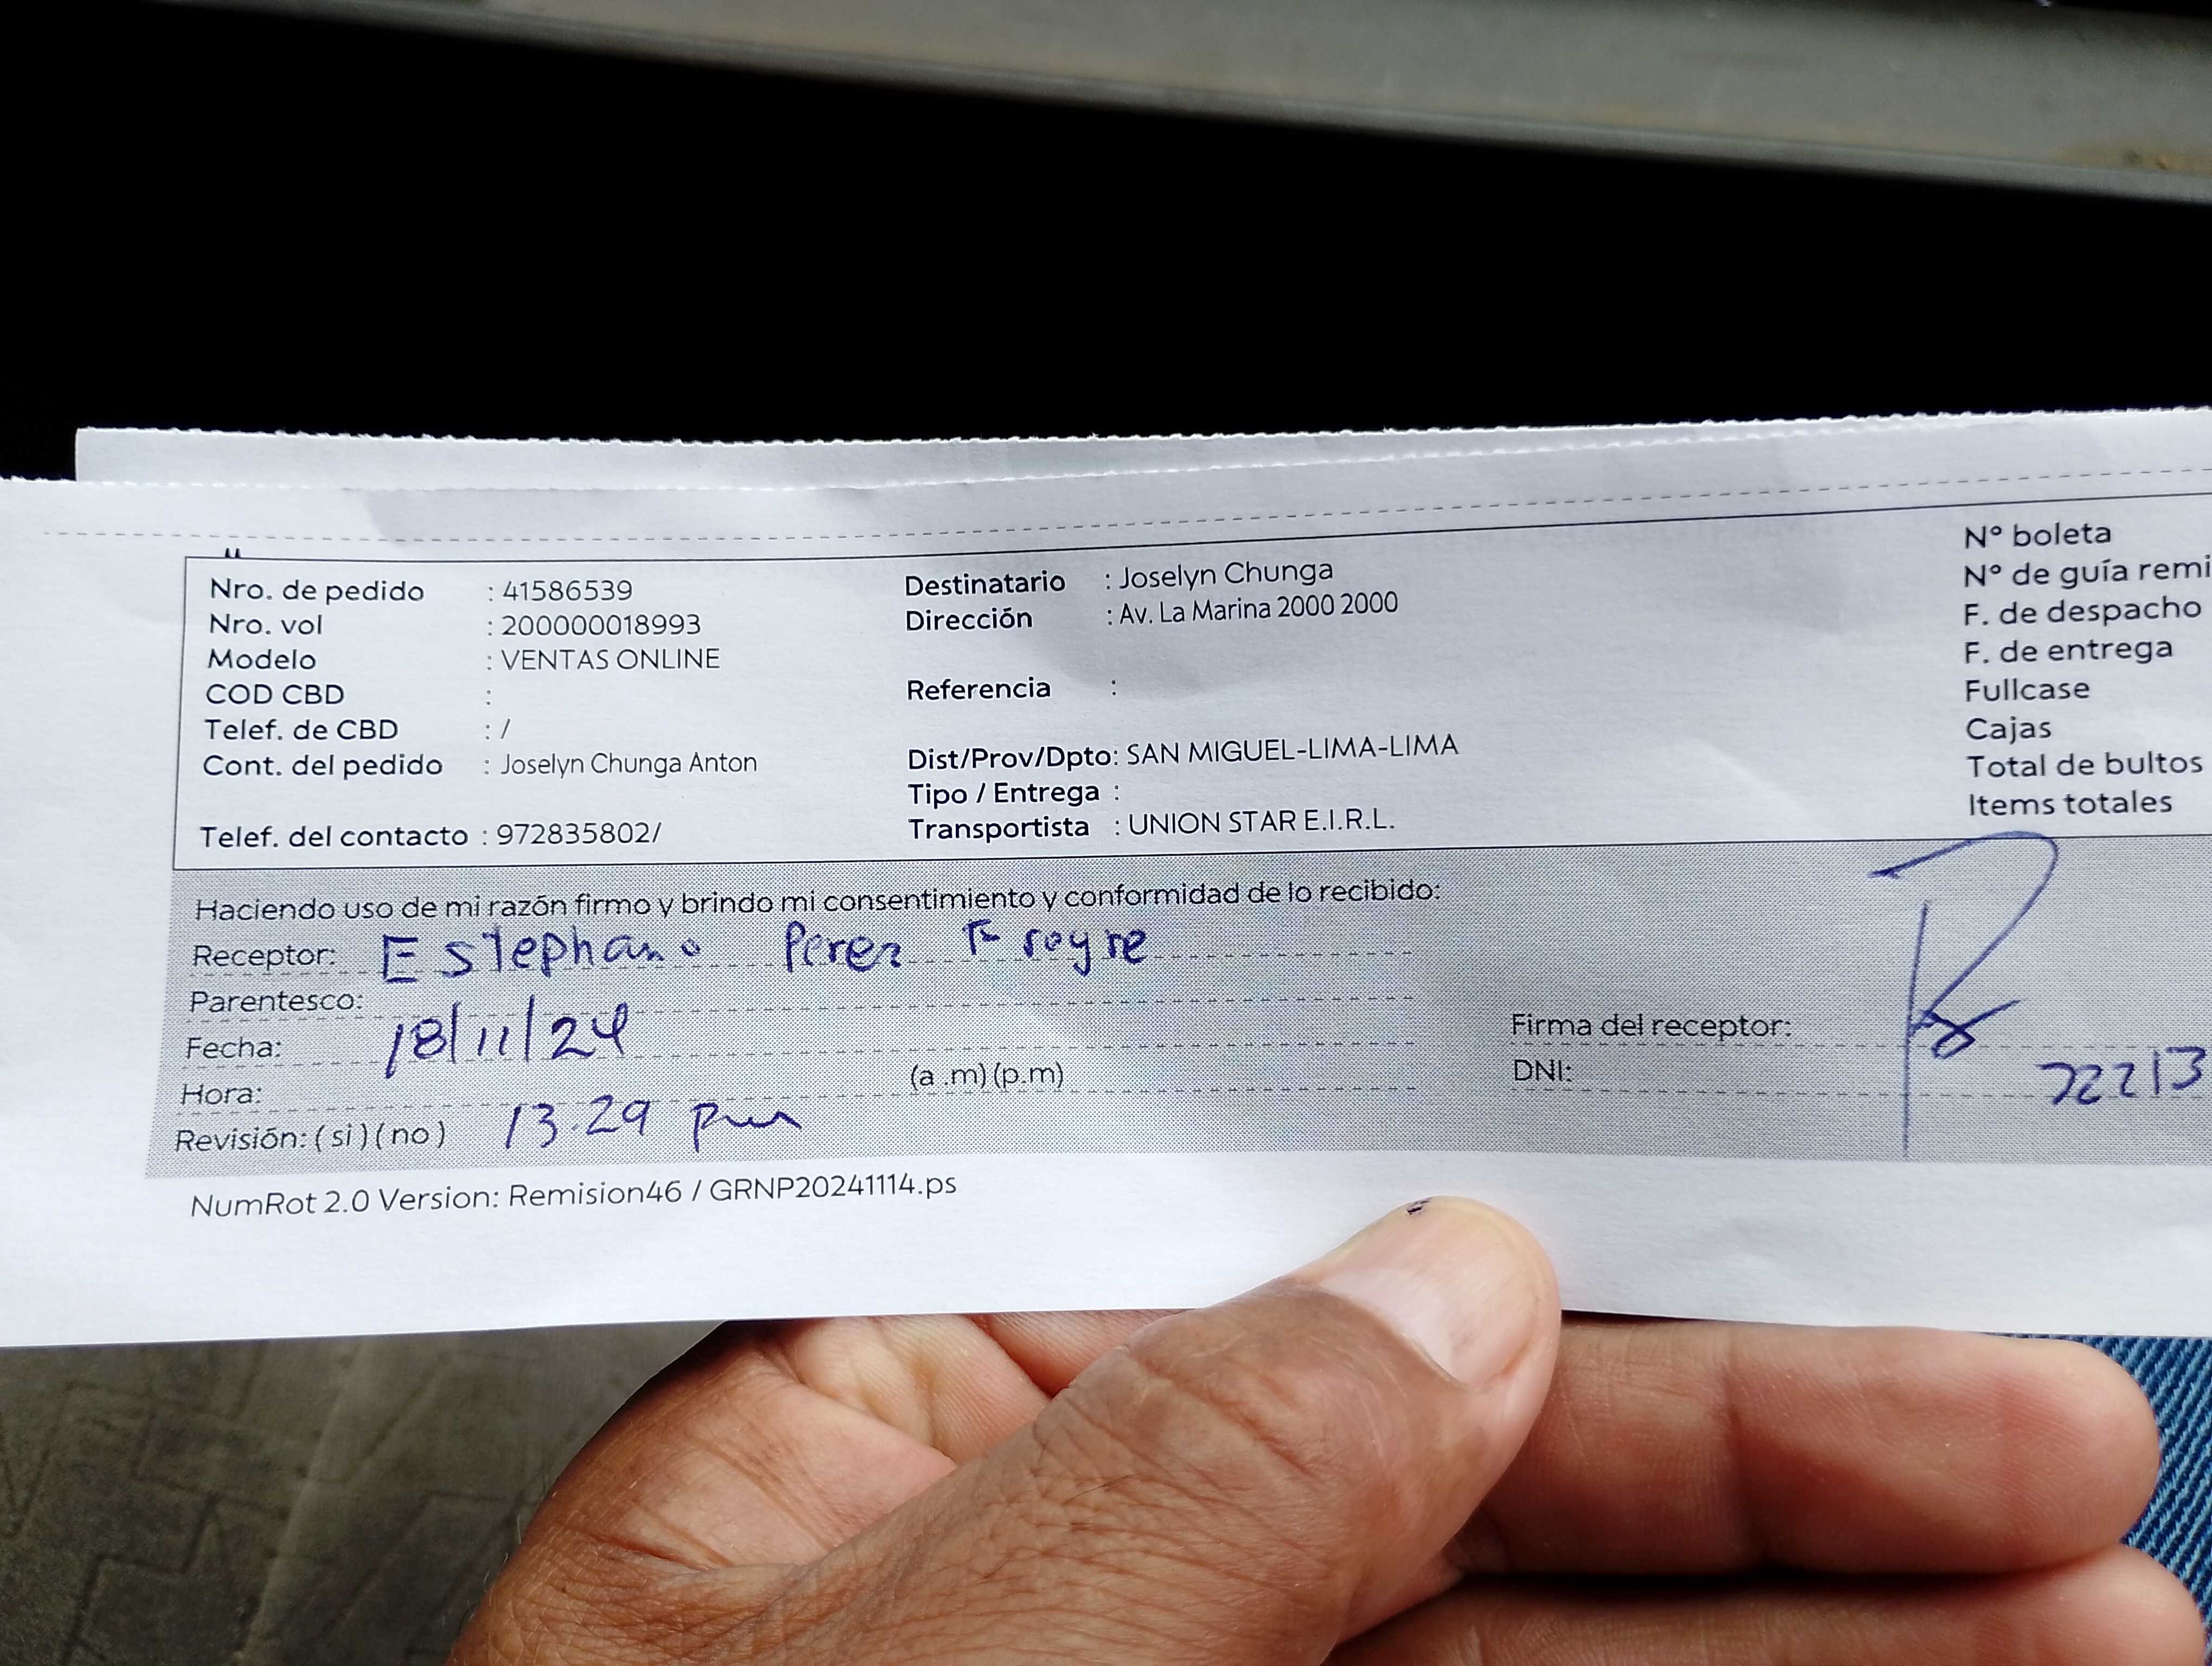 Nro. de pedido : 41586539
Nro. vol : 200000018993
Modelo : VENTAS ONLINE
COD CBD :
Telef. de CBD : /
Cont. del pedido : Joselyn Chunga Anton
Telef. del contacto : 972835802/
Destinatario : Joselyn Chunga
Dirección : Av. La Marina 2000 2000
Referencia :
Dist/Prov/Dpto: SAN MIGUEL-LIMA-LIMA
Tipo / Entrega :
Transportista : UNION STAR E.I.R.L.
N° boleta
N° de guía remi
F. de despacho
F. de entrega
Fullcase
Cajas
Total de bultos
Items totales
Haciendo uso de mi razón firmo y brindo mi consentimiento y conformidad de lo recibido:
Receptor: Estephano Perez Freyre
Parentesco:
Fecha: 18/11/24
Hora: (a .m) (p.m)
Revisión: ( si ) ( no ) 13.29 pm
Firma del receptor:
DNI: 72213
NumRot 2.0 Version: Remision46 / GRNP20241114.ps